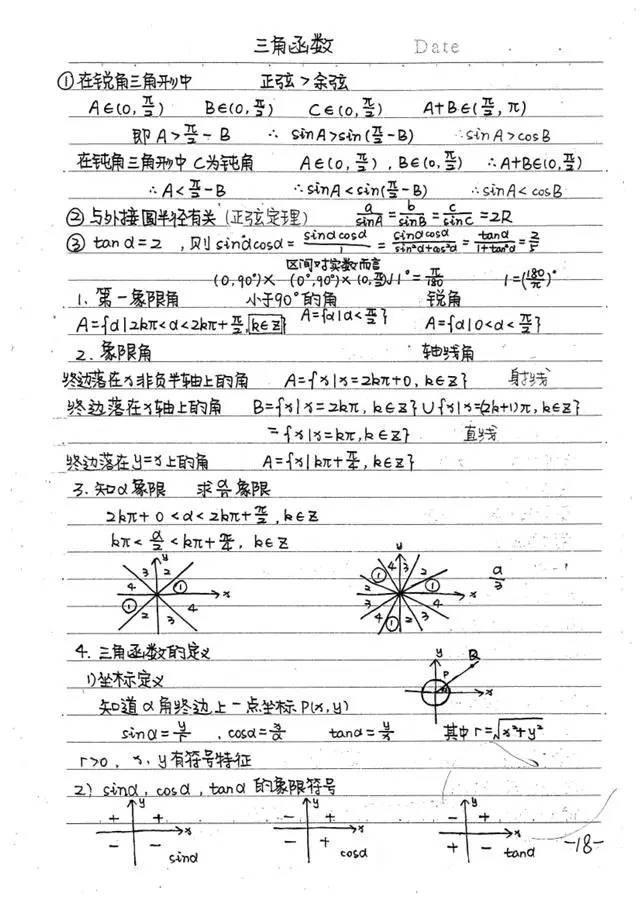 三角函数 Date
①在锐角三角形中 正弦>余弦
A∈(0,π/2) B∈(0,π/2) C∈(0,π/2) A+B∈(π/2,π)
即 A>π/2-B ∴ sinA>sin(π/2-B) ∴sinA>cosB
在钝角三角形中 C为钝角 A∈(0,π/2), B∈(0,π/2) ∴A+B∈(0,π/2)
∴A<π/2-B ∴sinA<sin(π/2-B) ∴sinA<cosB
②与外接圆半径有关(正弦定理) a/sinA=b/sinB=c/sinC=2R
③tanα=2,则sinαcosα=sinαcosα/1=sinαcosα/(sin²α+cos²α)=tanα/(1+tan²α)=2/5
区间对实数而言
(0,90°)× (0°,90°)× (0,π/2)√ 1°=π/180 1=(180/π)°
1. 第一象限角 小于90°的角 锐角
A={α|2kπ<α<2kπ+π/2,k∈Z} A={α|α<π/2} A={α|0<α<π/2}
2. 象限角 轴线角
终边落在x非负半轴上的角 A={x|x=2kπ+0, k∈Z} 射线
终边落在x轴上的角 B={x|x=2kπ, k∈Z}∪{x|x=(2k+1)π, k∈Z}
={x|x=kπ, k∈Z} 直线
终边落在y=x上的角 A={x|kπ+π/4, k∈Z}
3. 知α象限 求α/n象限
2kπ+0<α<2kπ+π/2, k∈Z
kπ<α/2<kπ+π/4, k∈Z
y x 3 2 4 ① ① 4 2 3
y x 4 3 ① 2 2 ① 3 4 4 3 ① 2 α/3
4. 三角函数的定义
1)坐标定义 y P x
知道α角终边上一点坐标P(x,y)
sinα=y/r, cosα=x/r tanα=y/x 其中r=√(x²+y²)
r>0, x, y有符号特征
2) sinα, cosα, tanα的象限符号
y + + x - - sinα
y - + x - + cosα
y - + x + - tanα
-18-